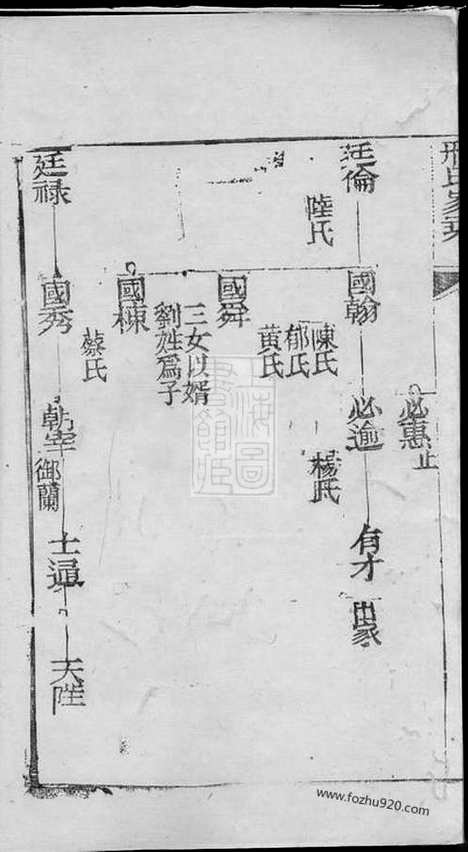 邢氏家乘
必惠止
廷倫
陸氏
國翰
陳氏
郁氏
黄氏
必逾
楊氏
有才
出家
國舜
三女以婿
劉姓爲子
國棟
廷禄
國秀
蔡氏
朝宰御蘭
士逼
天陞
上海圖書館藏
www.fozhu920.com